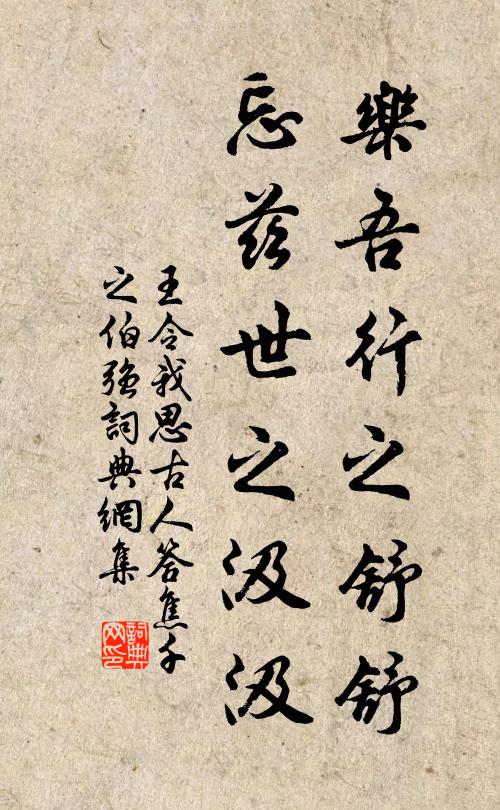 樂吾行之舒舒
忘茲世之汲汲
王令我思古人答焦千
之伯強詞典網集
詞典
网印